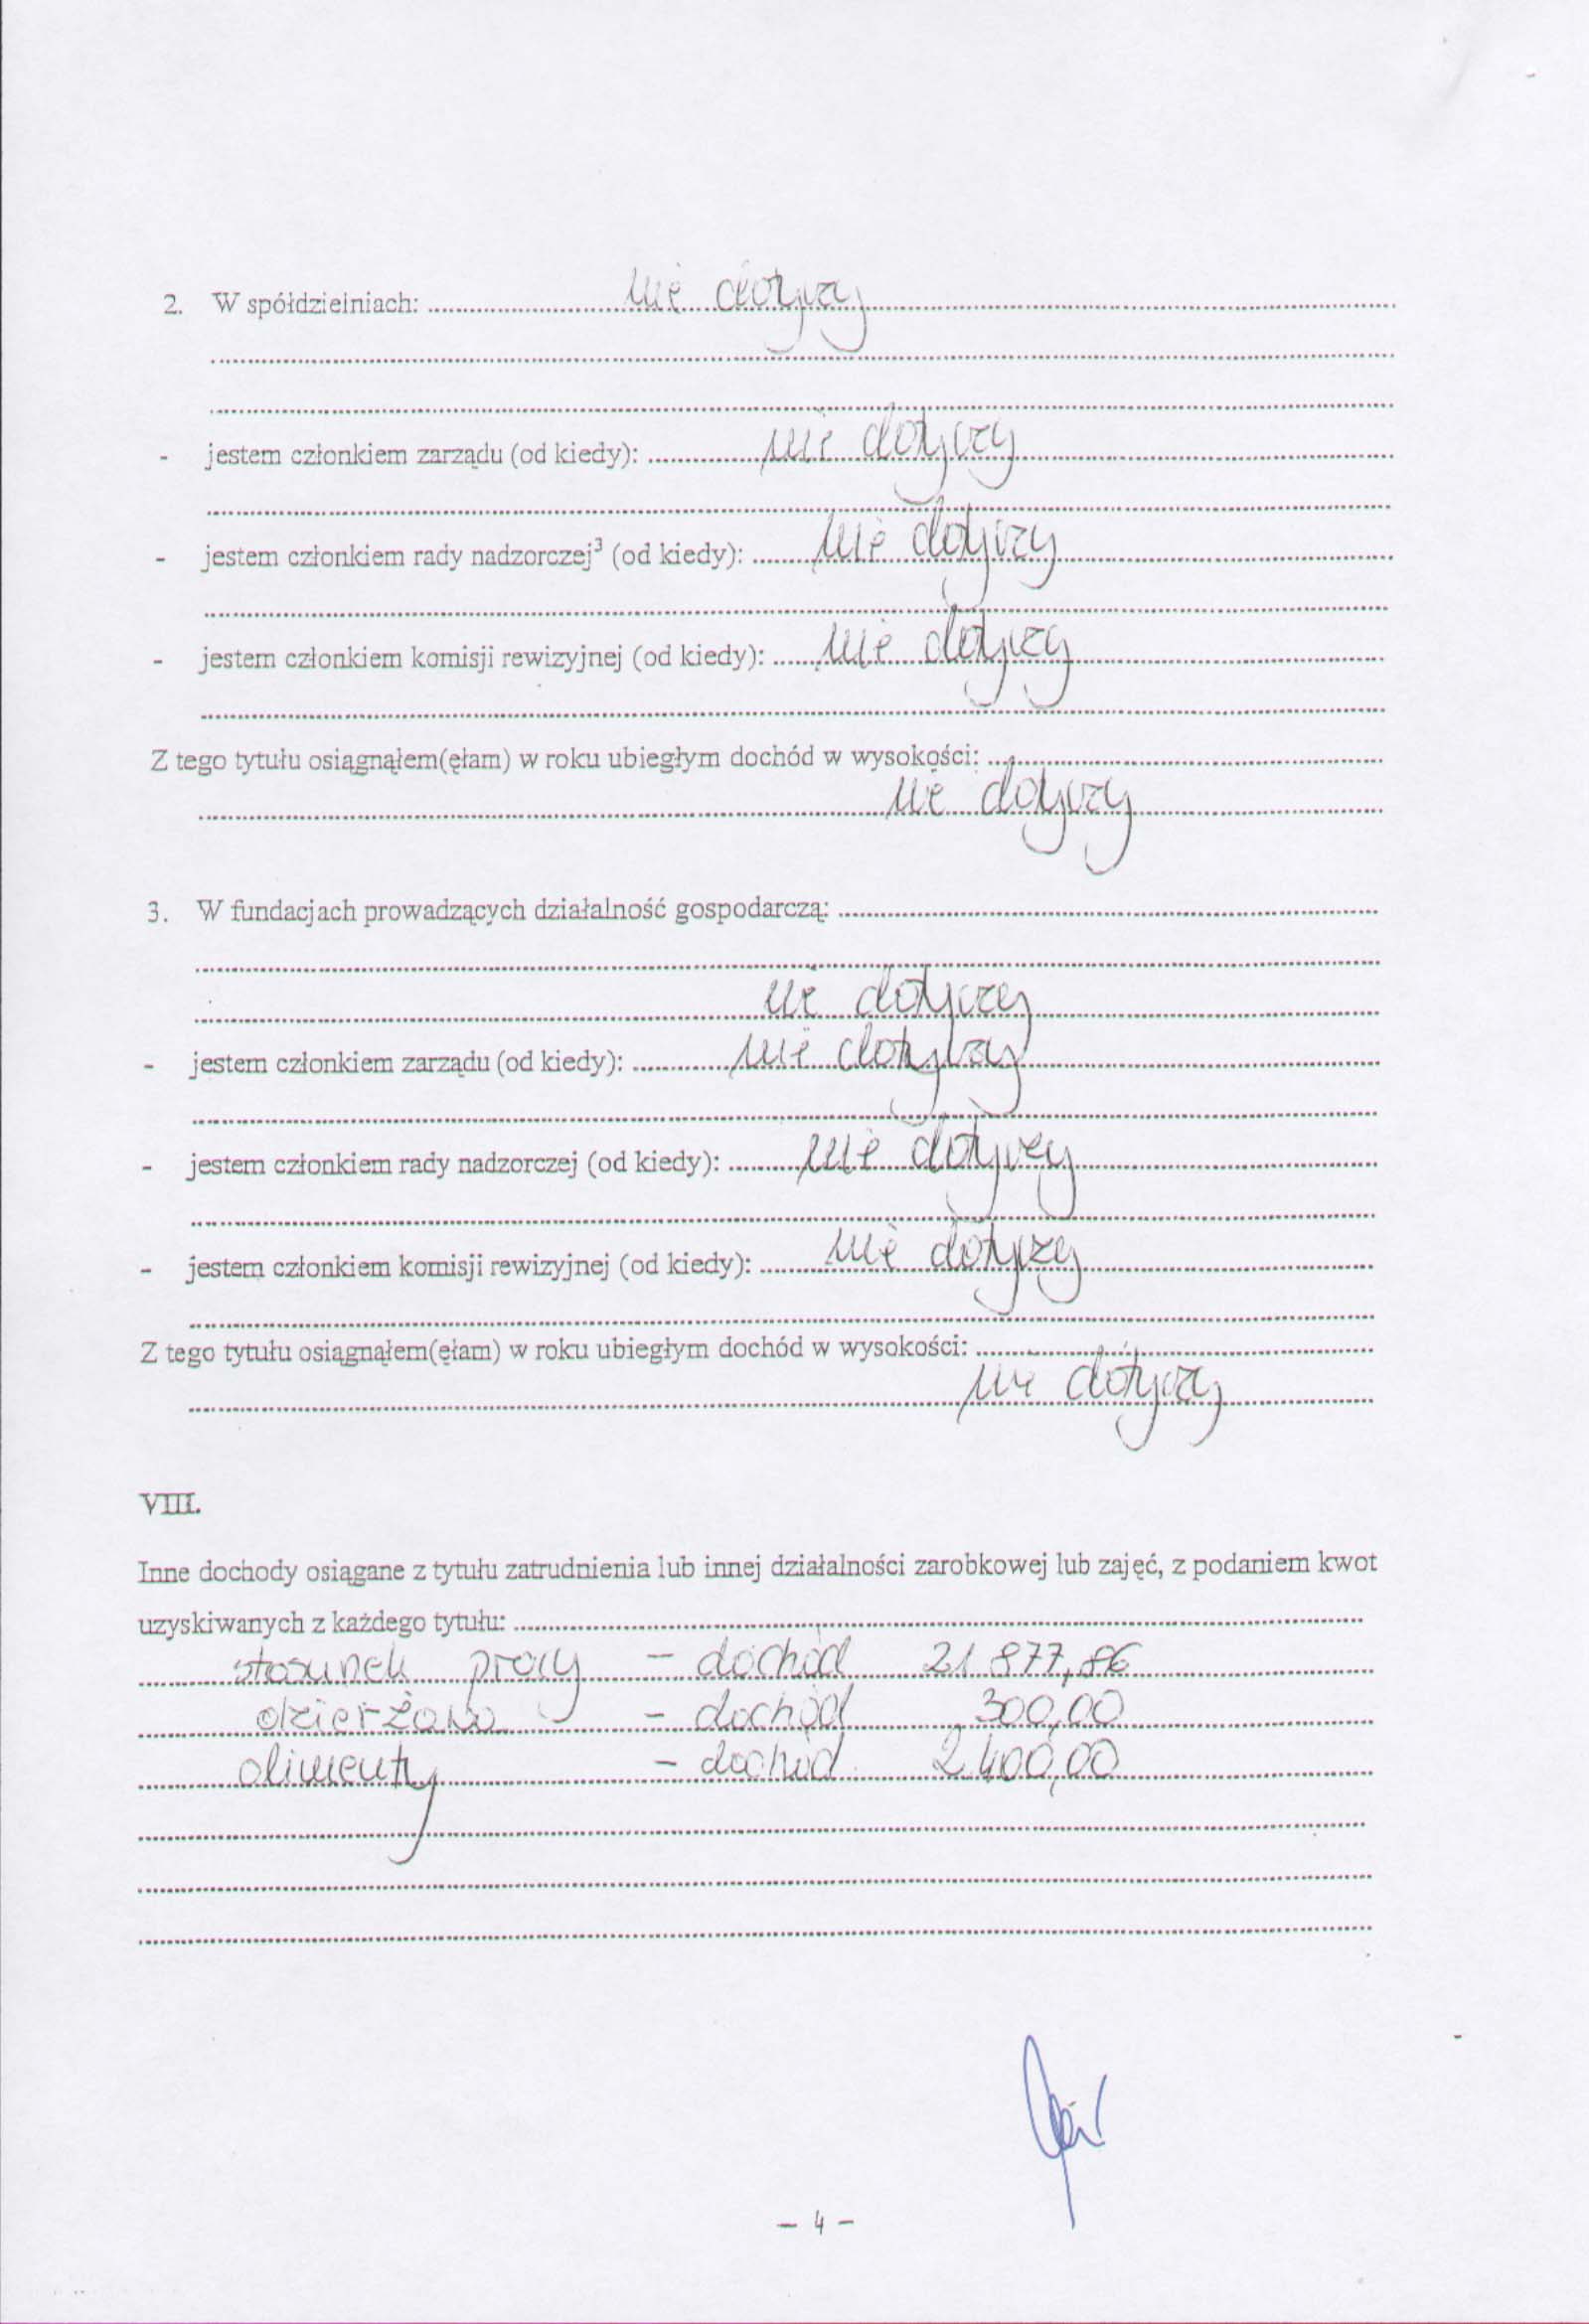 2. W spółdzielniach: nie dotyczy
- jestem członkiem zarządu (od kiedy): nie dotyczy
- jestem członkiem rady nadzorczej³ (od kiedy): nie dotyczy
- jestem członkiem komisji rewizyjnej (od kiedy): nie dotyczy
Z tego tytułu osiągnąłem(ęłam) w roku ubiegłym dochód w wysokości:
nie dotyczy
3. W fundacjach prowadzących działalność gospodarczą:
nie dotyczy
- jestem członkiem zarządu (od kiedy): nie dotyczy
- jestem członkiem rady nadzorczej (od kiedy): nie dotyczy
- jestem członkiem komisji rewizyjnej (od kiedy): nie dotyczy
Z tego tytułu osiągnąłem(ęłam) w roku ubiegłym dochód w wysokości:
nie dotyczy
VIII.
Inne dochody osiągane z tytułu zatrudnienia lub innej działalności zarobkowej lub zajęć, z podaniem kwot
uzyskiwanych z każdego tytułu:
stosunek pracy – dochód 21 877,86
dzierżawa – dochód 300,00
alimenty – dochód 2.400,00
– 4 –